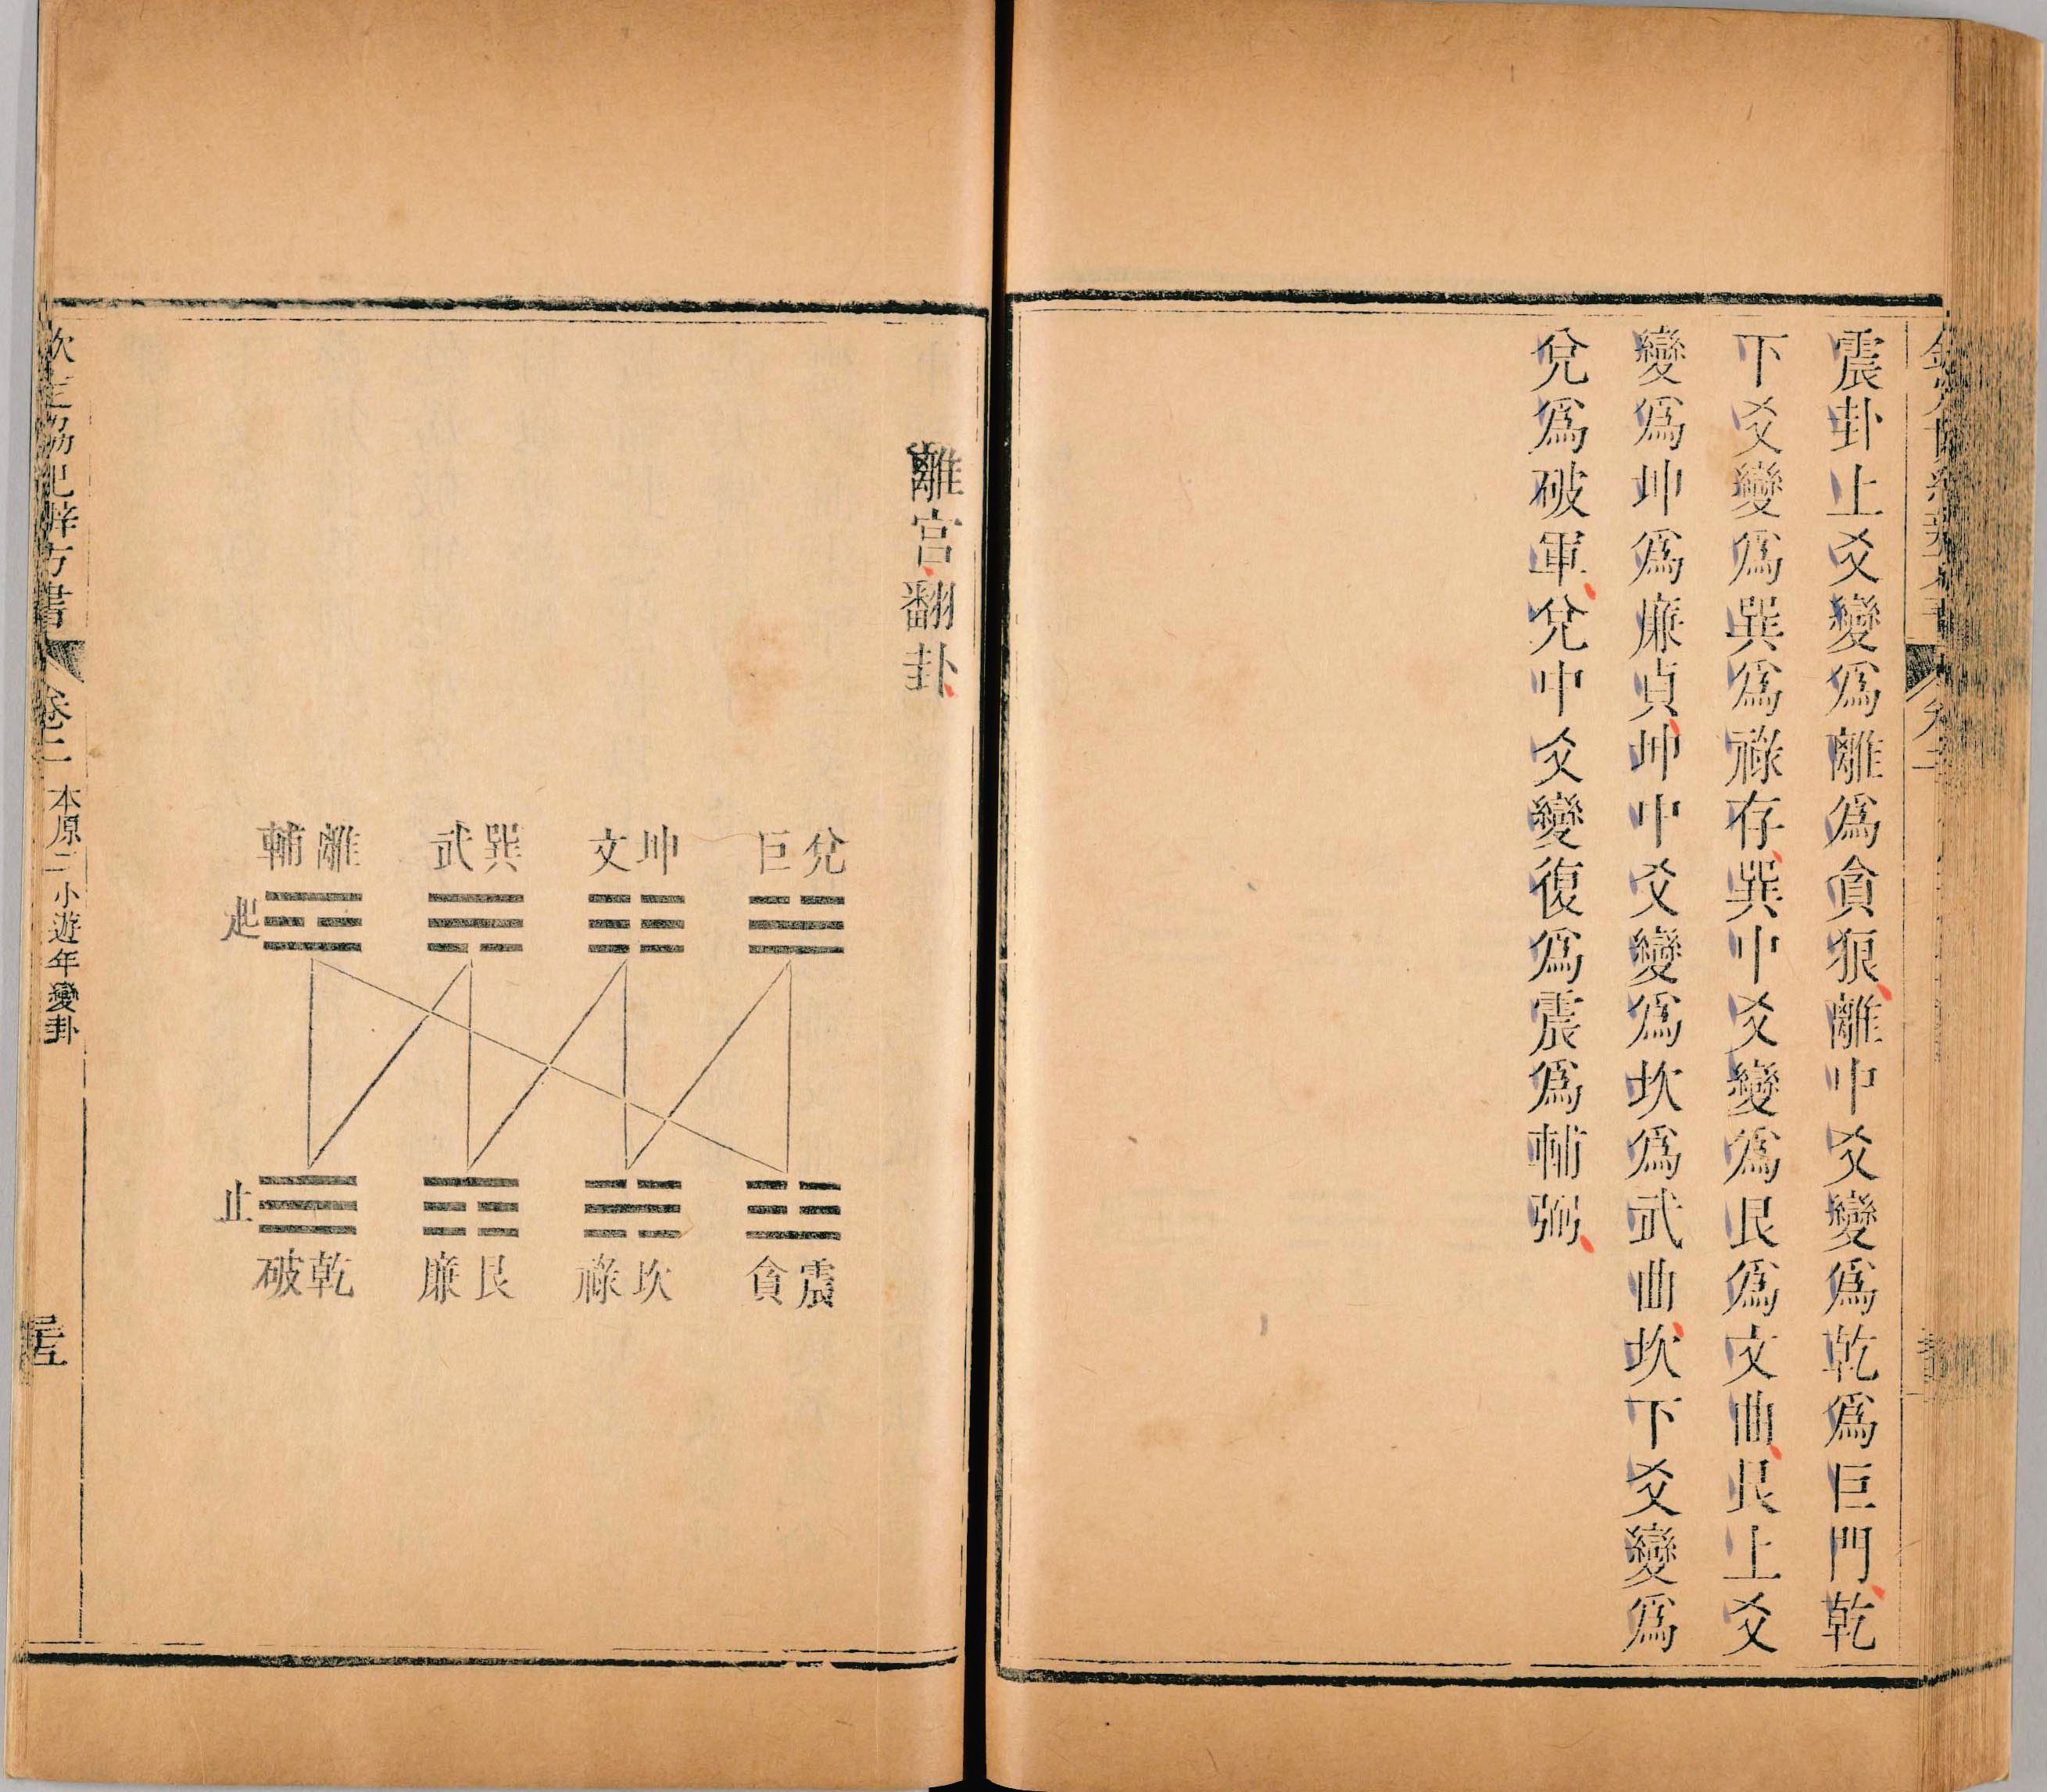 震卦上爻變爲離爲貪狼離中爻變爲乾爲巨門乾
下爻變爲巽爲祿存巽中爻變爲艮爲文曲艮上爻
變爲坤爲廉貞坤中爻變爲坎爲武曲坎下爻變爲
兌爲破軍兌中爻變復爲震爲輔弼
離宮翻卦
兌巨
坤文
巽武
離輔
起
震貪
坎祿
艮廉
乾破
止
欽定協紀辨方書 卷二 本原二 小遊年變卦